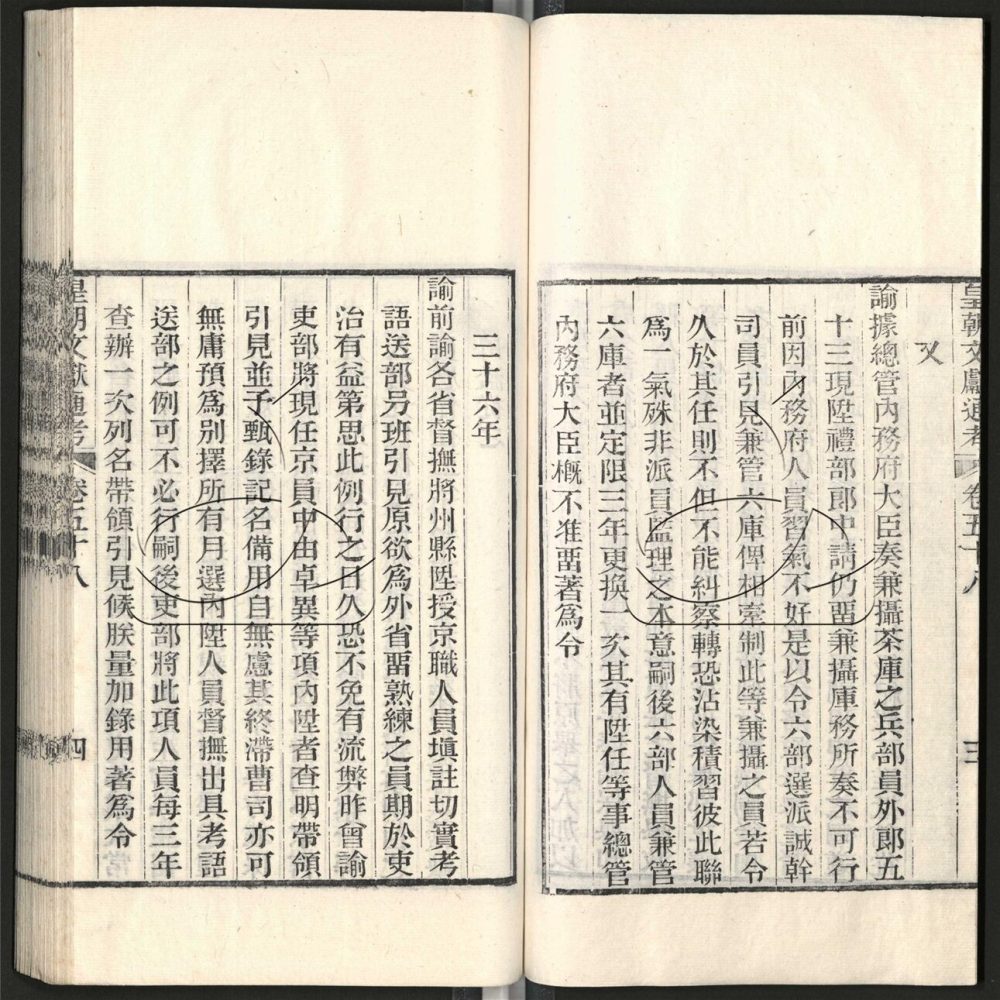 皇朝文獻通考 卷五十八 三
又
諭據總管內務府大臣奏兼攝茶庫之兵部員外郎五
十三現陞禮部郎中請仍畱兼攝庫務所奏不可行
前因內務府人員習氣不好是以令六部選派誠幹
司員引見兼管六庫俾相牽制此等兼攝之員若令
久於其任則不但不能糾察轉恐沾染積習彼此聯
爲一氣殊非派員監理之本意嗣後六部人員兼管
六庫者並定限三年更換一次其有陞任等事總管
內務府大臣槪不准畱著爲令
三十六年
諭前諭各省督撫將州縣陞授京職人員塡註切實考
語送部另班引見原欲爲外省畱熟練之員期於吏
治有益第思此例行之日久恐不免有流弊昨曾諭
吏部將現任京員中由卓異等項內陞者查明帶領
引見並予甄錄記名備用自無慮其終滯曹司亦可
無庸預爲別擇所有月選內陞人員督撫出具考語
送部之例可不必行嗣後吏部將此項人員每三年
查辦一次列名帶領引見候朕量加錄用著爲令
皇朝文獻通考 卷五十八 四